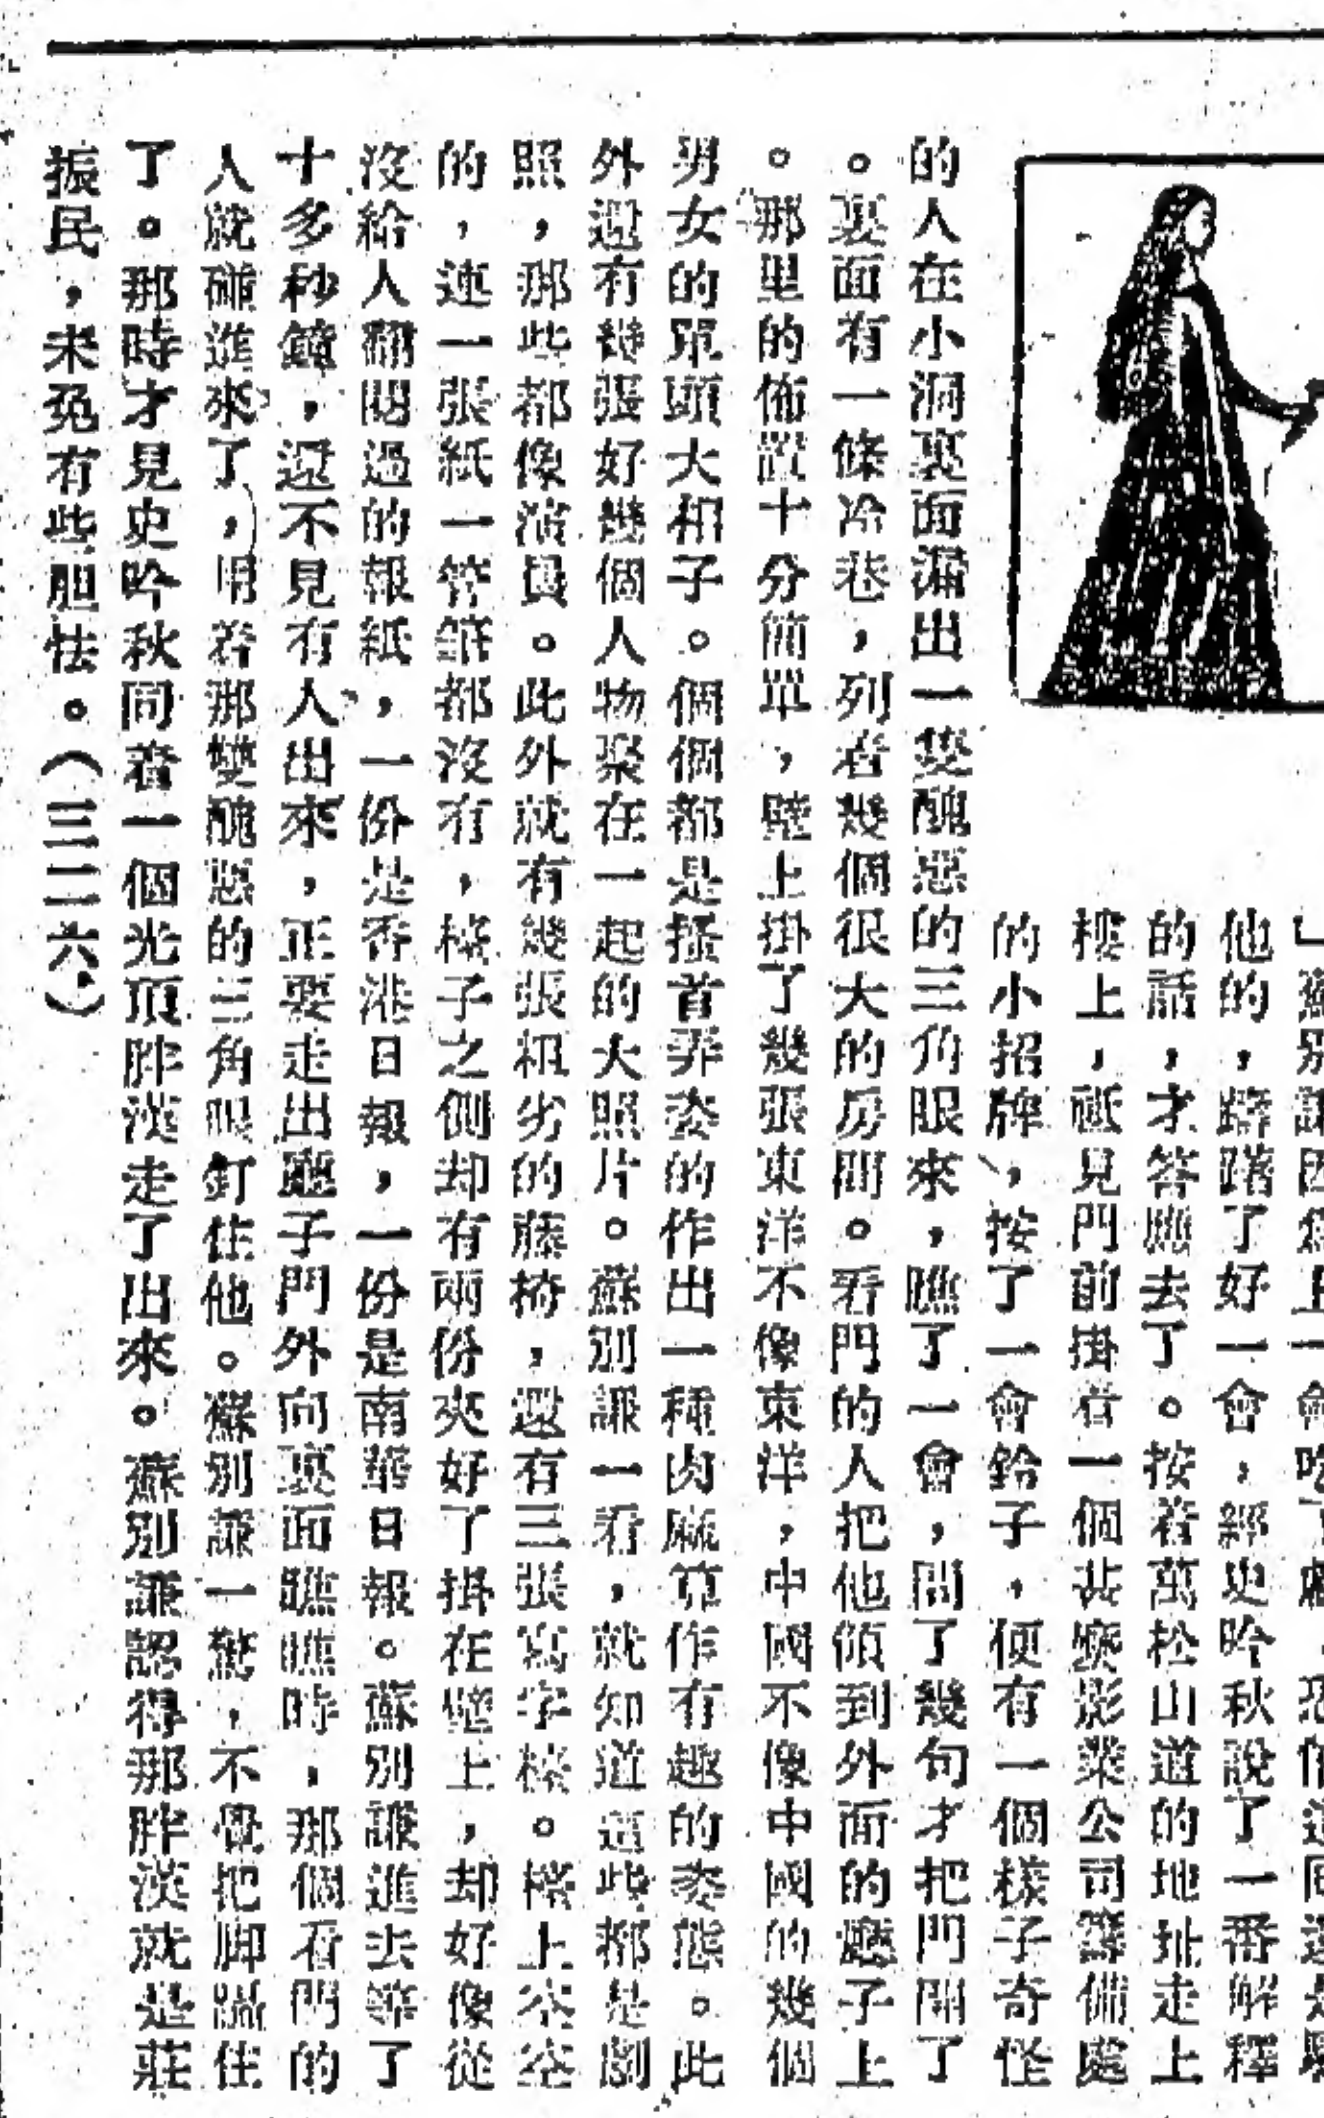 」蘇別謙因為上一會吃了虧，恐怕這同還是騙
他的，躊躇了好一會，經史吟秋說了一番解釋
的話，才答應去了。按着萬松山道的地址走上
樓上，祗見門前掛着一個甚麼影業公司籌備處
的小招牌，按了一會鈴子，便有一個樣子奇怪
的人在小洞裏面漏出一雙醜惡的三角眼來，瞧了一會，問了幾句才把門開了
。裏面有一條冷巷，列着幾個很大的房間。看門的人把他領到外面的廳子上
。那里的佈置十分簡單，壁上掛了幾張東洋不像東洋，中國不像中國的幾個
男女的單頭大相子。個個都是搔首弄姿的作出一種肉麻算作有趣的姿態。此
外還有幾張好幾個人物聚在一起的大照片。蘇別謙一看，就知道這些都是劇
照，那些都像演員。此外就有幾張粗劣的藤椅，還有三張寫字檯。檯上空空
的，連一張紙一管筆都沒有，檯子之側却有兩份夾好了掛在壁上，却好像從
沒給人翻閱過的報紙，一份是香港日報，一份是南華日報。蘇別謙進去等了
十多秒鐘，還不見有人出來，正要走出廳子門外向裏面瞧瞧時，那個看門的
人就碰進來了，用着那雙醜惡的三角眼釘住他。蘇別謙一驚，不覺把脚縮住
了。那時才見史吟秋同着一個光頂胖漢走了出來。蘇別謙認得那胖漢就是莊
振民，未免有些胆怯。（三二六）